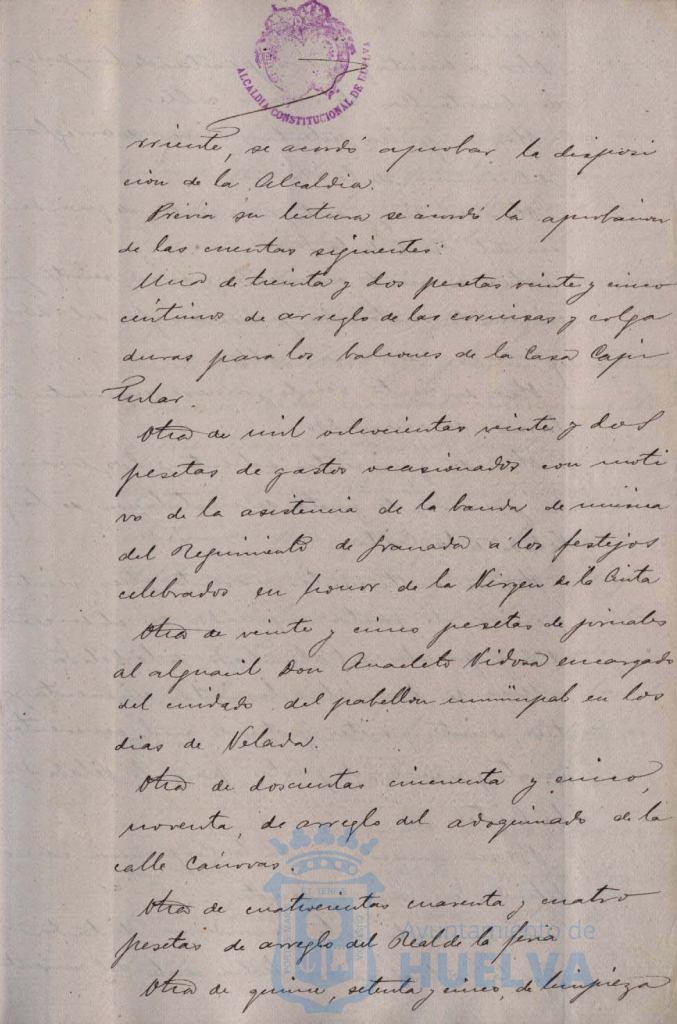 ALCALDIA CONSTITUCIONAL DE HUELVA
rriente, se acordó aprobar la disposi
cion de la Alcaldia.
Prévia su lectura se acordó la aprobacion
de las cuentas siguientes:
Una de treinta y dos pesetas veinte y cinco
céntimos de arreglo de las cornisas y colga
duras para los balcones de la Casa Capi
tular.
Otra de mil ochocientas veinte y dos
pesetas de gastos ocasionados con moti
vo de la asistencia de la banda de música
del Regimiento de Granada a los festejos
celebrados en honor de la Virgen de la Cinta
Otra de veinte y cinco pesetas de jornales
al alguacil Don Anacleto Vidosa encargado
del cuidado del pabellon municipal en los
dias de Velada.
Otra de doscientas cincuenta y cinco,
noventa, de arreglo del adoquinado de la
calle Cánovas.
Otra de cuatrocientas cuarenta y cuatro
pesetas de arreglo del Real de la feria
Otra de quince, setenta y cinco, de limpieza
Ayuntamiento de
HUELVA